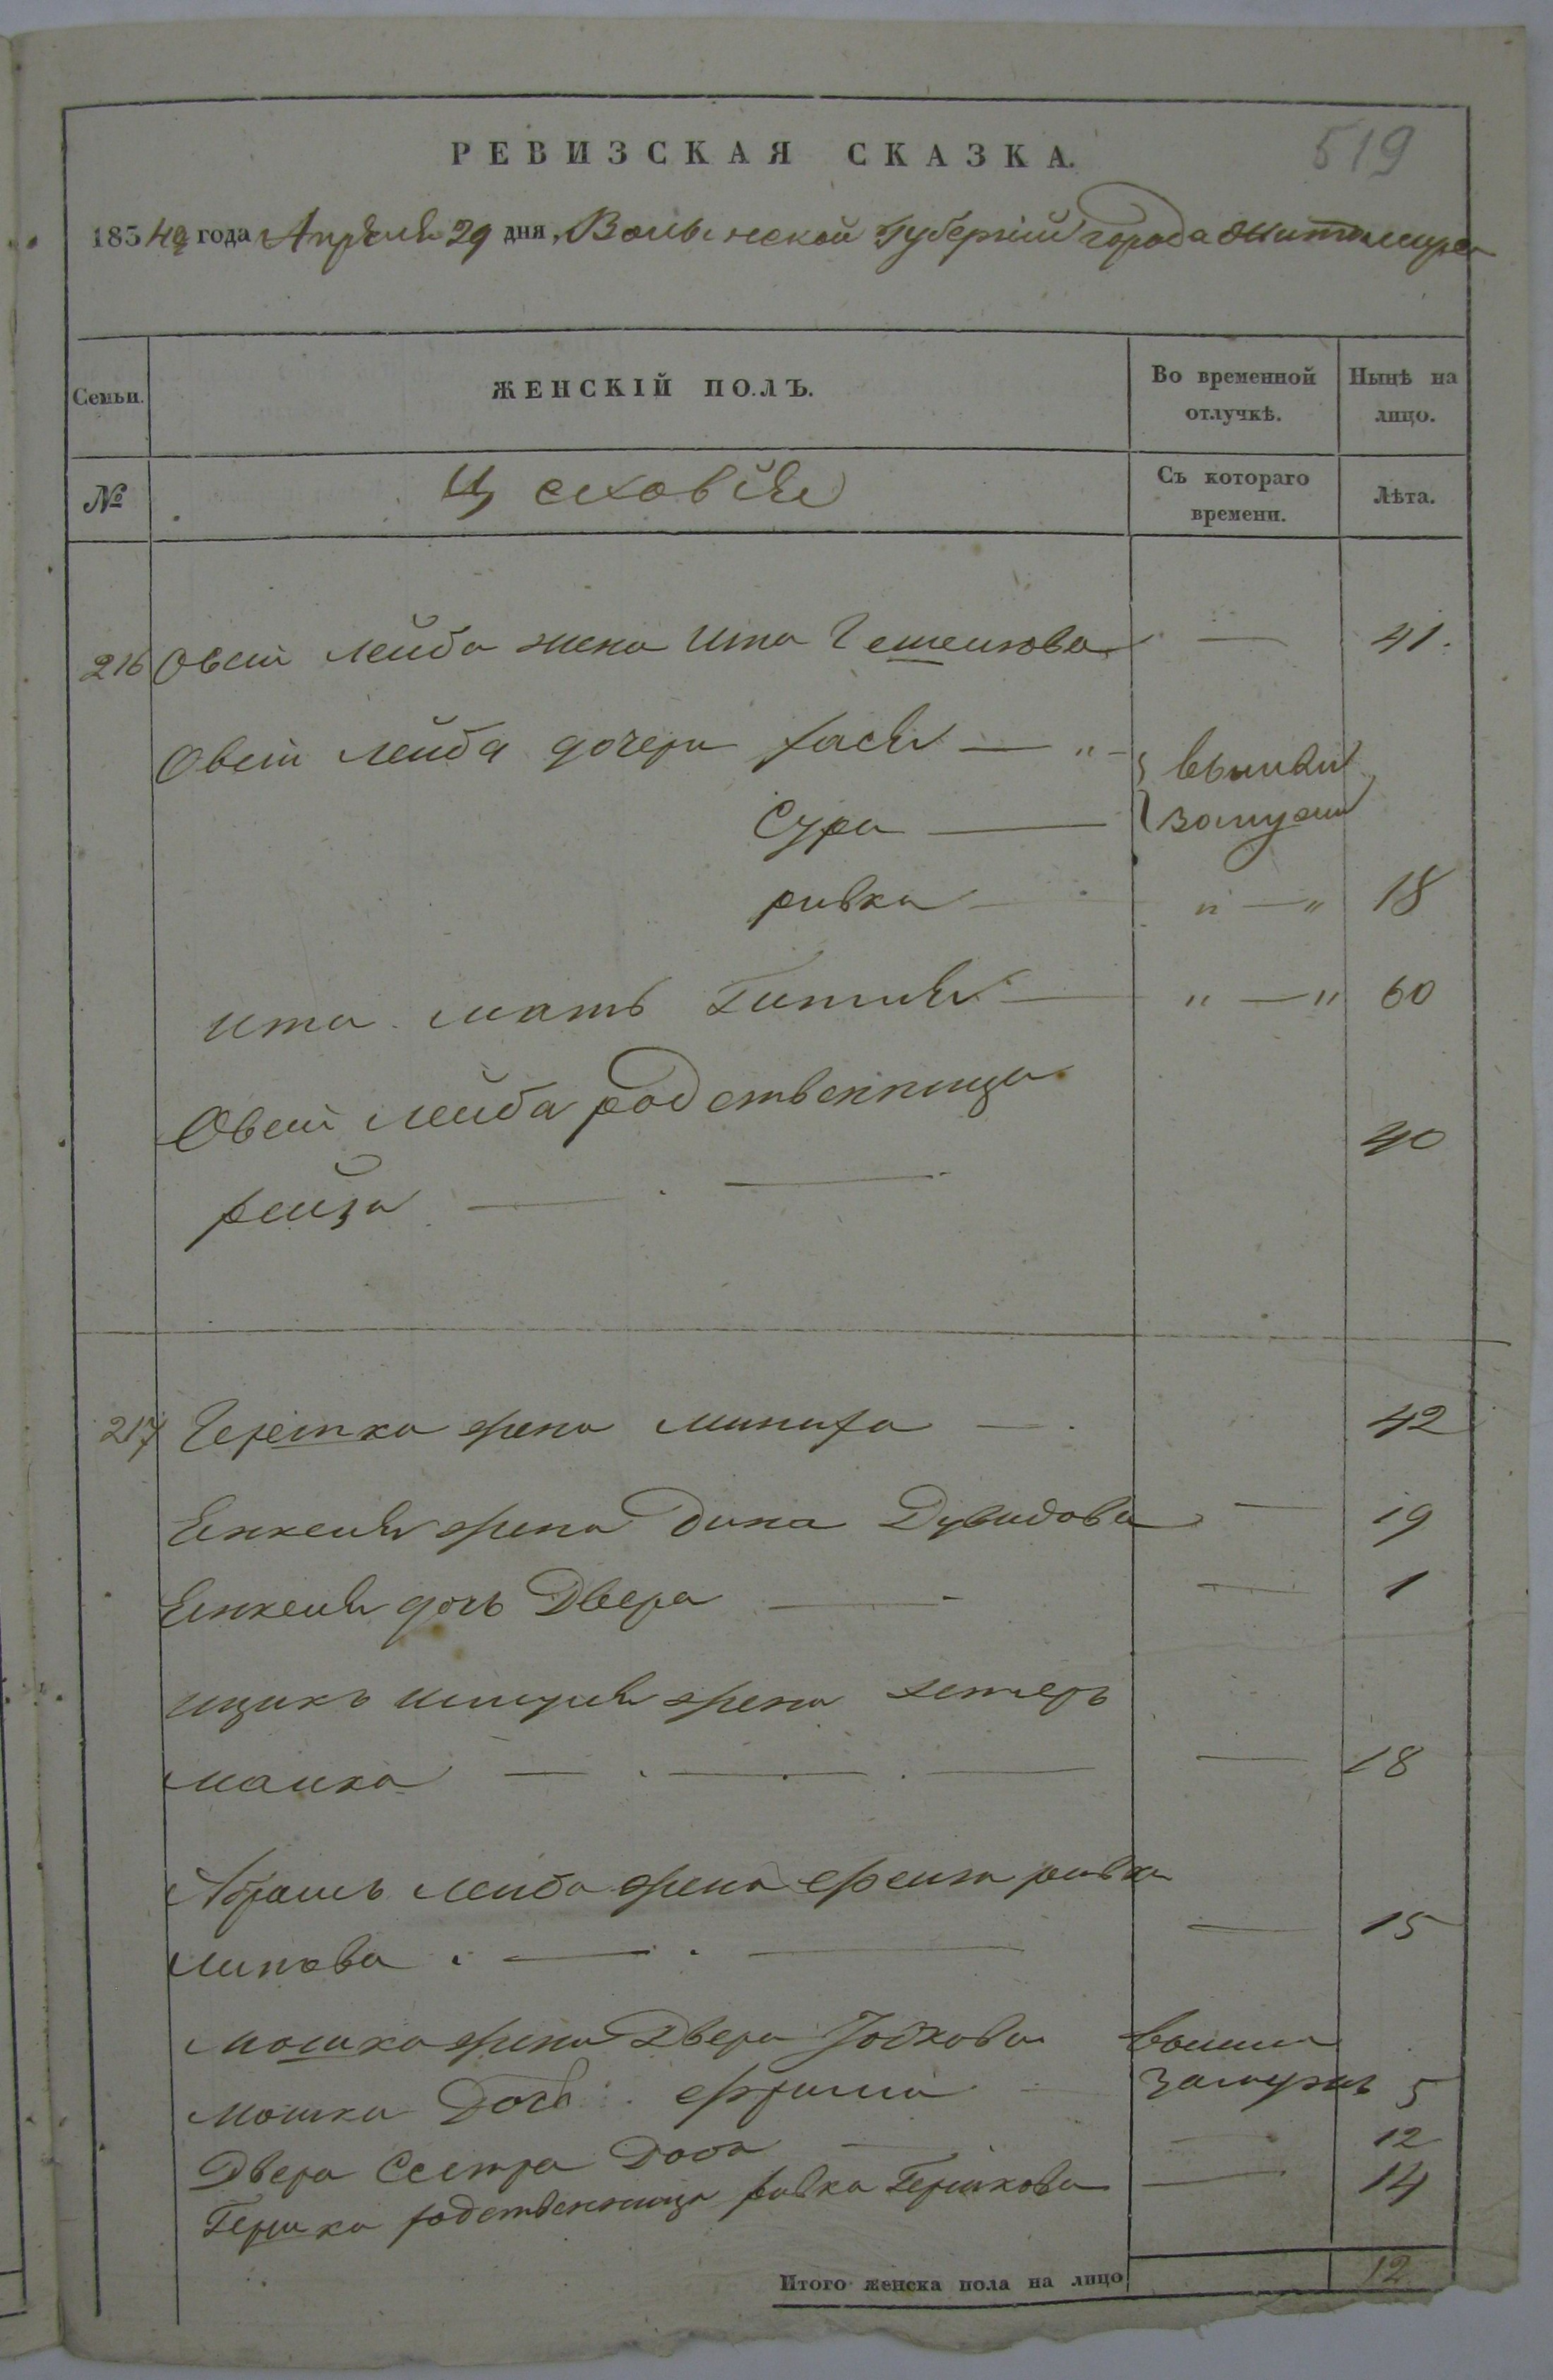 РЕВИЗСКАЯ СКАЗКА.
519
183 года Апреля 29 дня, Волынской Губернiи города Житомира
Семьи.
ЖЕНСКIЙ ПОЛЪ.
Во временной отлучкѣ.
Нынѣ на лицо.
№
Съ котораго времени.
Лѣта.
216 Овсiй Лейба жена Ита — 41.
Овсiй Лейба дочери Рася — " — вышли
Сура — замужъ
Ривка — " — " 18
Ита мать Гитля — " — " 60
Овсiй Лейба родственница
40
Рейза — —
217 Гершка жена — 42
жена Дина Дувидова — 19
дочь Двера — — 1
Ицикъ жена Хетеръ
Малка — — — — 18
Абрамъ Лейба жена Фейга Ривка
— — — 15
Мошка жена Двера вышла
Мошка дочь Фрима — замужъ 5
Двера сестра Доба — — 12
Гершка родственница Ривка Гершкова — 14
Итого женска пола на лицо 12